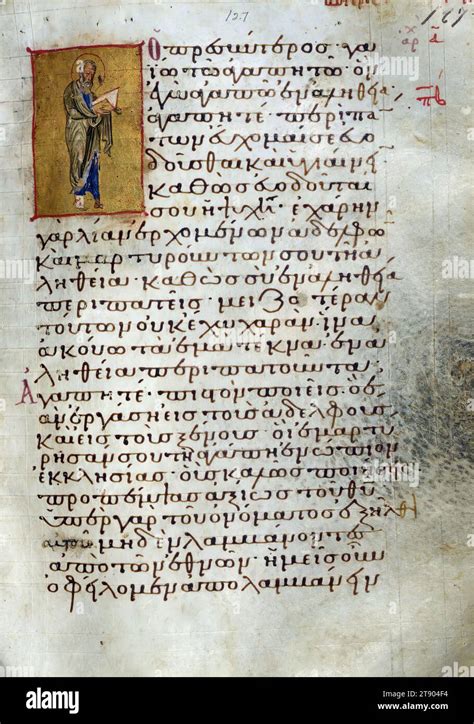 127
127
Ὁ πρεσβύτερος γα
ΐω τῶ ἀγαπητῶ ὃν
ἐγὼ ἀγαπῶ ἐν ἀληθεία
ἀγαπητὲ· περὶ πάν
των εὔχομαί σε εὐο
δοῦσθαι καὶ ὑγιαίνειν
καθὼς εὐοδοῦται
σου ἡ ψυχή· ἐχάρην
γὰρ λίαν ἐρχομένων ἀδελφῶν
καὶ μαρτυρούντων σου τῆ ἀ
ληθεία· καθὼς σὺ ἐν ἀληθεία
περιπατεῖς· μειζοτέραν
τούτων οὐκ ἔχω χαρὰν· ἵνα
ἀκούω τὰ ἐμὰ τέκνα ἐν ἀ
ληθεία περιπατοῦντα·
Ἀγαπητέ· πιστὸν ποιεῖς ὃ ἐ
ὰν ἐργάση εἰς τοὺς ἀδελφοὺς
καὶ εἰς τοὺς ξένους· οἳ ἐμαρτύ
ρησαν σου τῆ ἀγάπη ἐνώπιον
ἐκκλησίας· οὓς καλῶς ποιεῖς
προπέμψας ἀξίως τοῦ θυ
ὑπὲρ γὰρ τοῦ ὀνόματος ἐξῆλθον
μηδὲν λαμβάνοντες
ἀπὸ τῶν ἐθνῶν· ἡμεῖς οὖν
ὀφείλομεν ἀπολαμβάνειν
alamy
Image ID: 2T904F4
www.alamy.com